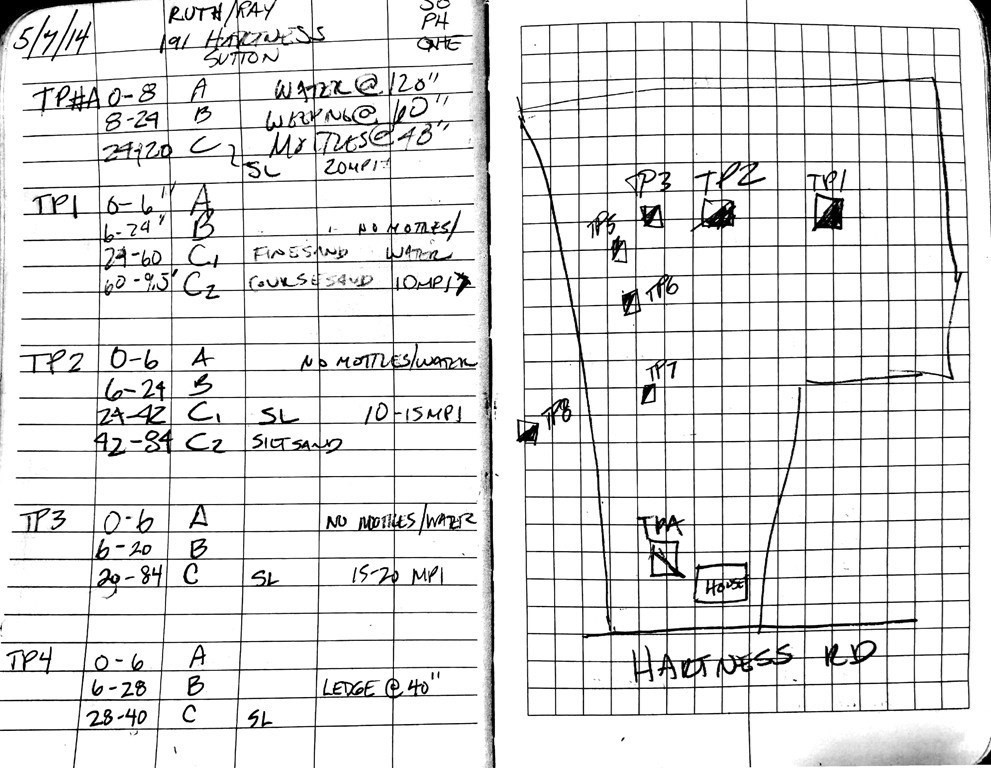 5/7/14 RUTH/RAY SO
191 HARTNESS PH
SUTTON
TP#A 0-8 A WATER @ 120"
8-24 B WEEPING @ 60"
24-120 C MOTTLES @ 48"
SL 20MPI
TP1 0-6" A
6-24" B NO MOTTLES/
24-60 C1 FINE SAND WATER
60-9.5' C2 COURSE SAND 10MPI
TP2 0-6 A NO MOTTLES/WATER
6-24 B
24-42 C1 SL 10-15MPI
42-84 C2 SILT SAND
TP3 0-6 A NO MOTTLES/WATER
6-20 B
20-84 C SL 15-20 MPI
TP4 0-6 A
6-28 B LEDGE @ 40"
28-40 C SL
TP3 TP2 TP1
TP5
TP6
TP7
TP8
TPA
HOUSE
HARTNESS RD